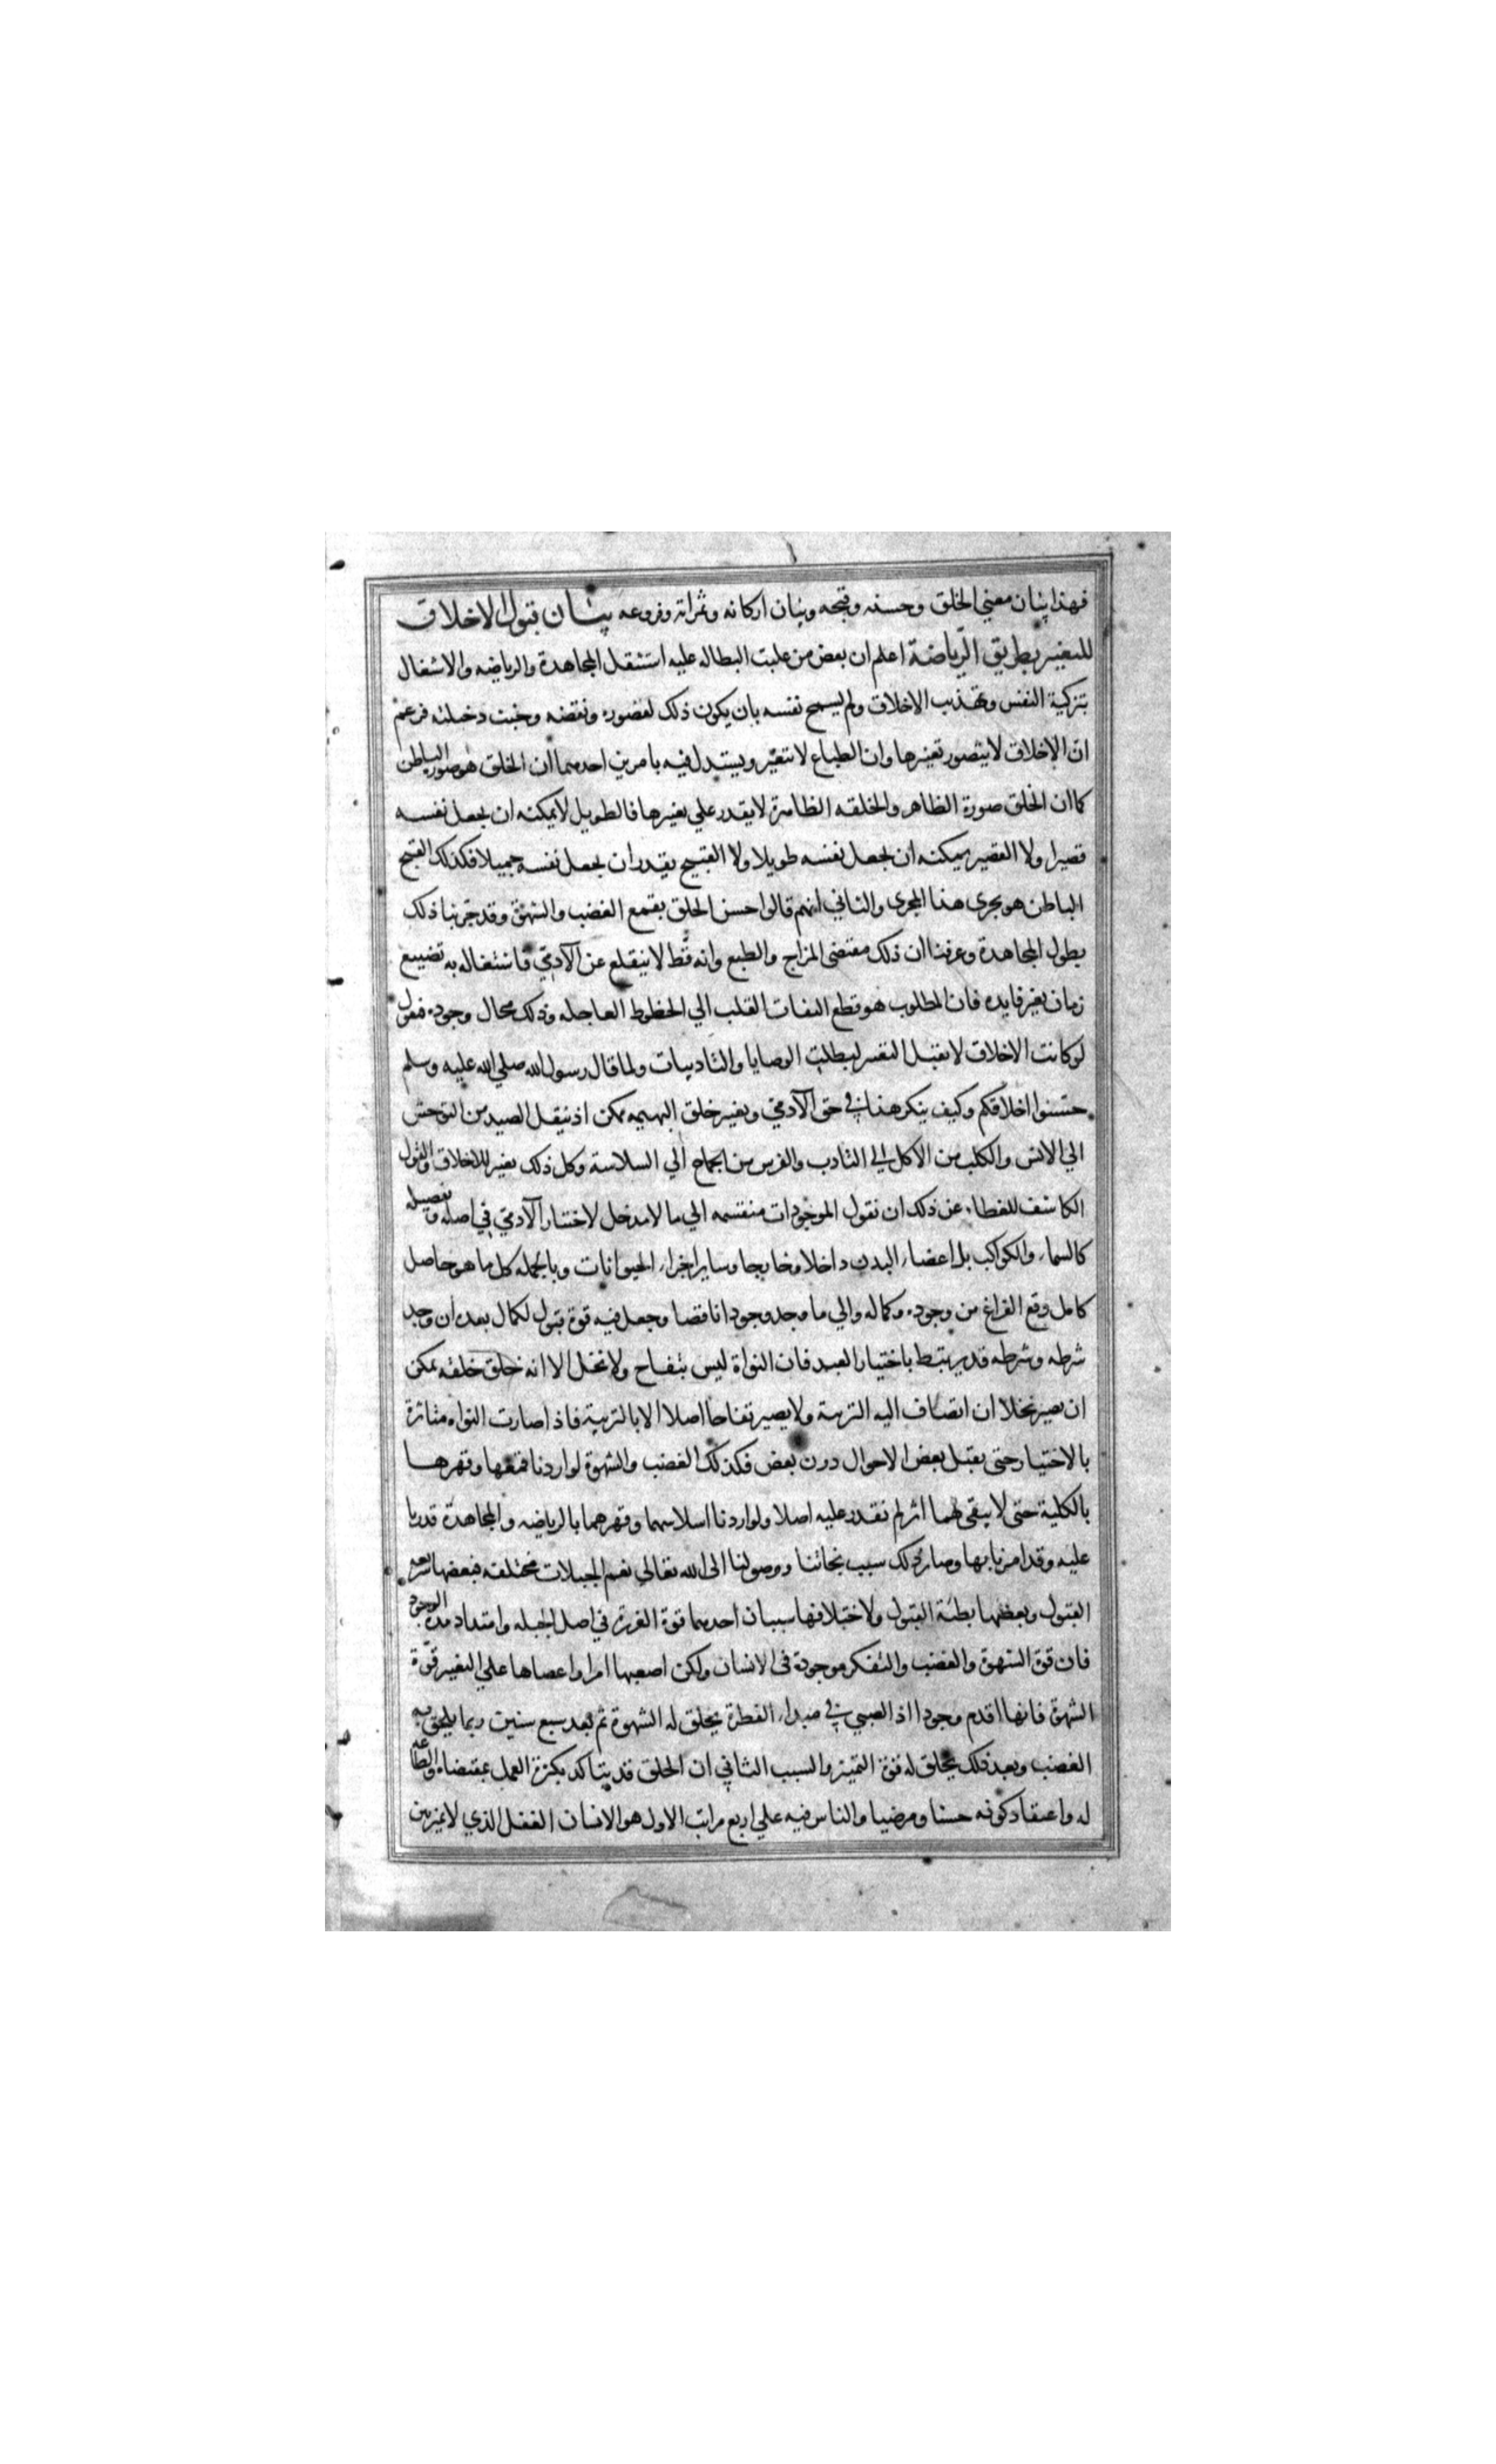 فهذا بيان معني الخلق وحسنه وقبحه وبيان اركانه وثمراته وفروعه بيان قبول الاخلاق
للتغيير بطريق الرّياضة اعلم ان بعض من غلبت البطاله عليه استثقل المجاهدة والرياضه والاشغال
بتزكية النفس وتهذيب الاخلاق ولم يسمح نفسه بان يكون ذلك لقصوره ونقصه وخبث دخلته فزعم
انّ الاخلاق لا يتصور تغيرها وان الطباع لا تتغيّر ويستدل فيه بامرين احدهما ان الخلق هو صورة الباطن
كما ان الخلق صورة الظاهر والخلقه الظاهرة لا يقدر علي تغيرها فالطويل لا يمكنه ان يجعل نفسه
قصيرا ولا القصير يمكنه ان يجعل نفسه طويلا ولا القبيح يقدر ان يجعل نفسه جميلا فكذلك القبح
الباطن هو يجري هذا المجري والثاني انهم قالوا حسن الخلق بقمع الغضب والشهوة وقد جرّبنا ذلك
بطول المجاهدة وعرفنا ان ذلك مقتضى المزاج والطبع وانه قط لا ينقلع عن الآدميّ فاشتغاله به تضييع
زمان بغير فايده فان المطلوب هو قطع التفات القلب الي الحظوظ العاجله وذلك محال وجوده فنقول
لو كانت الاخلاق لا تقبل التغير لبطلت الوصايا والتاديبات ولما قال رسول الله صلي الله عليه وسلم
حسّنوا اخلاقكم وكيف ينكر هذا في حق الآدمي وتغير خلق البهيمه ممكن اذ ينقل الصيد من التوحش
الي الانس والكلب من الاكل الي التادب والفرس من الجماح الي السلاسة وكل ذلك تغير للاخلاق والقول
الكاشف للغطاء عن ذلك ان نقول الموجودات منقسمه الي ما لا مدخل لاختيار الآدميّ في اصله وتفصيله
كالسماء والكواكب بل اعضاء البدن داخلا وخارجا وساير اجزاء الحيوانات وبالجمله كل ما هو حاصل
كامل وقع الفراغ من وجوده وكماله والي ما وجد وجودا ناقصا وجعل فيه قوة قبول لكمال بعد ان وجد
شرطه وشرطه قد يرتبط باختيار العبد فان النواة ليس بتفاح ولا نخل الا انه خلق خلقه يمكن
ان يصير نخلا ان انضاف اليه التربية ولا يصير تفاحا اصلا الا بالتربية فاذا صارت النواه متاثرة
بالاختيار حتى يقبل بعض الاحوال دون بعض فكذلك الغضب والشهوة لو اردنا قمعها وقهرها
بالكلية حتى لا يبقى لهما اثر لم نقدر عليه اصلا ولو اردنا اسلاسهما وقهرهما بالرياضه والمجاهدة قدرنا
عليه وقد امرنا بها وصار ذلك سبب نجاتنا ووصولنا الى الله تعالي نعم الجبلات مختلفه فبعضها سريعه
القبول وبعضها بطئة القبول ولاختلافها سببان احدهما قوة الغريزة في اصل الجبله وامتداد مدة الوجود
فان قوة الشهوة والغضب والتفكر موجودة في الانسان ولكن اصعبها امرا واعصاها علي التغير قوّة
الشهوة فانها اقدم وجودا اذ الصبي في مبداء الفطرة يخلق له الشهوة ثم بعد سبع سنين ربما يخلق به
الغضب وبعد ذلك يخلق له قوة التميز والسبب الثاني ان الخلق قد يتاكد بكثرة العمل بمقتضاه والطاعه
له واعتقاد كونه حسنا ومرضيا والناس فيه علي اربع مراتب الاول هو الانسان الغفل الذي لا يميز بين